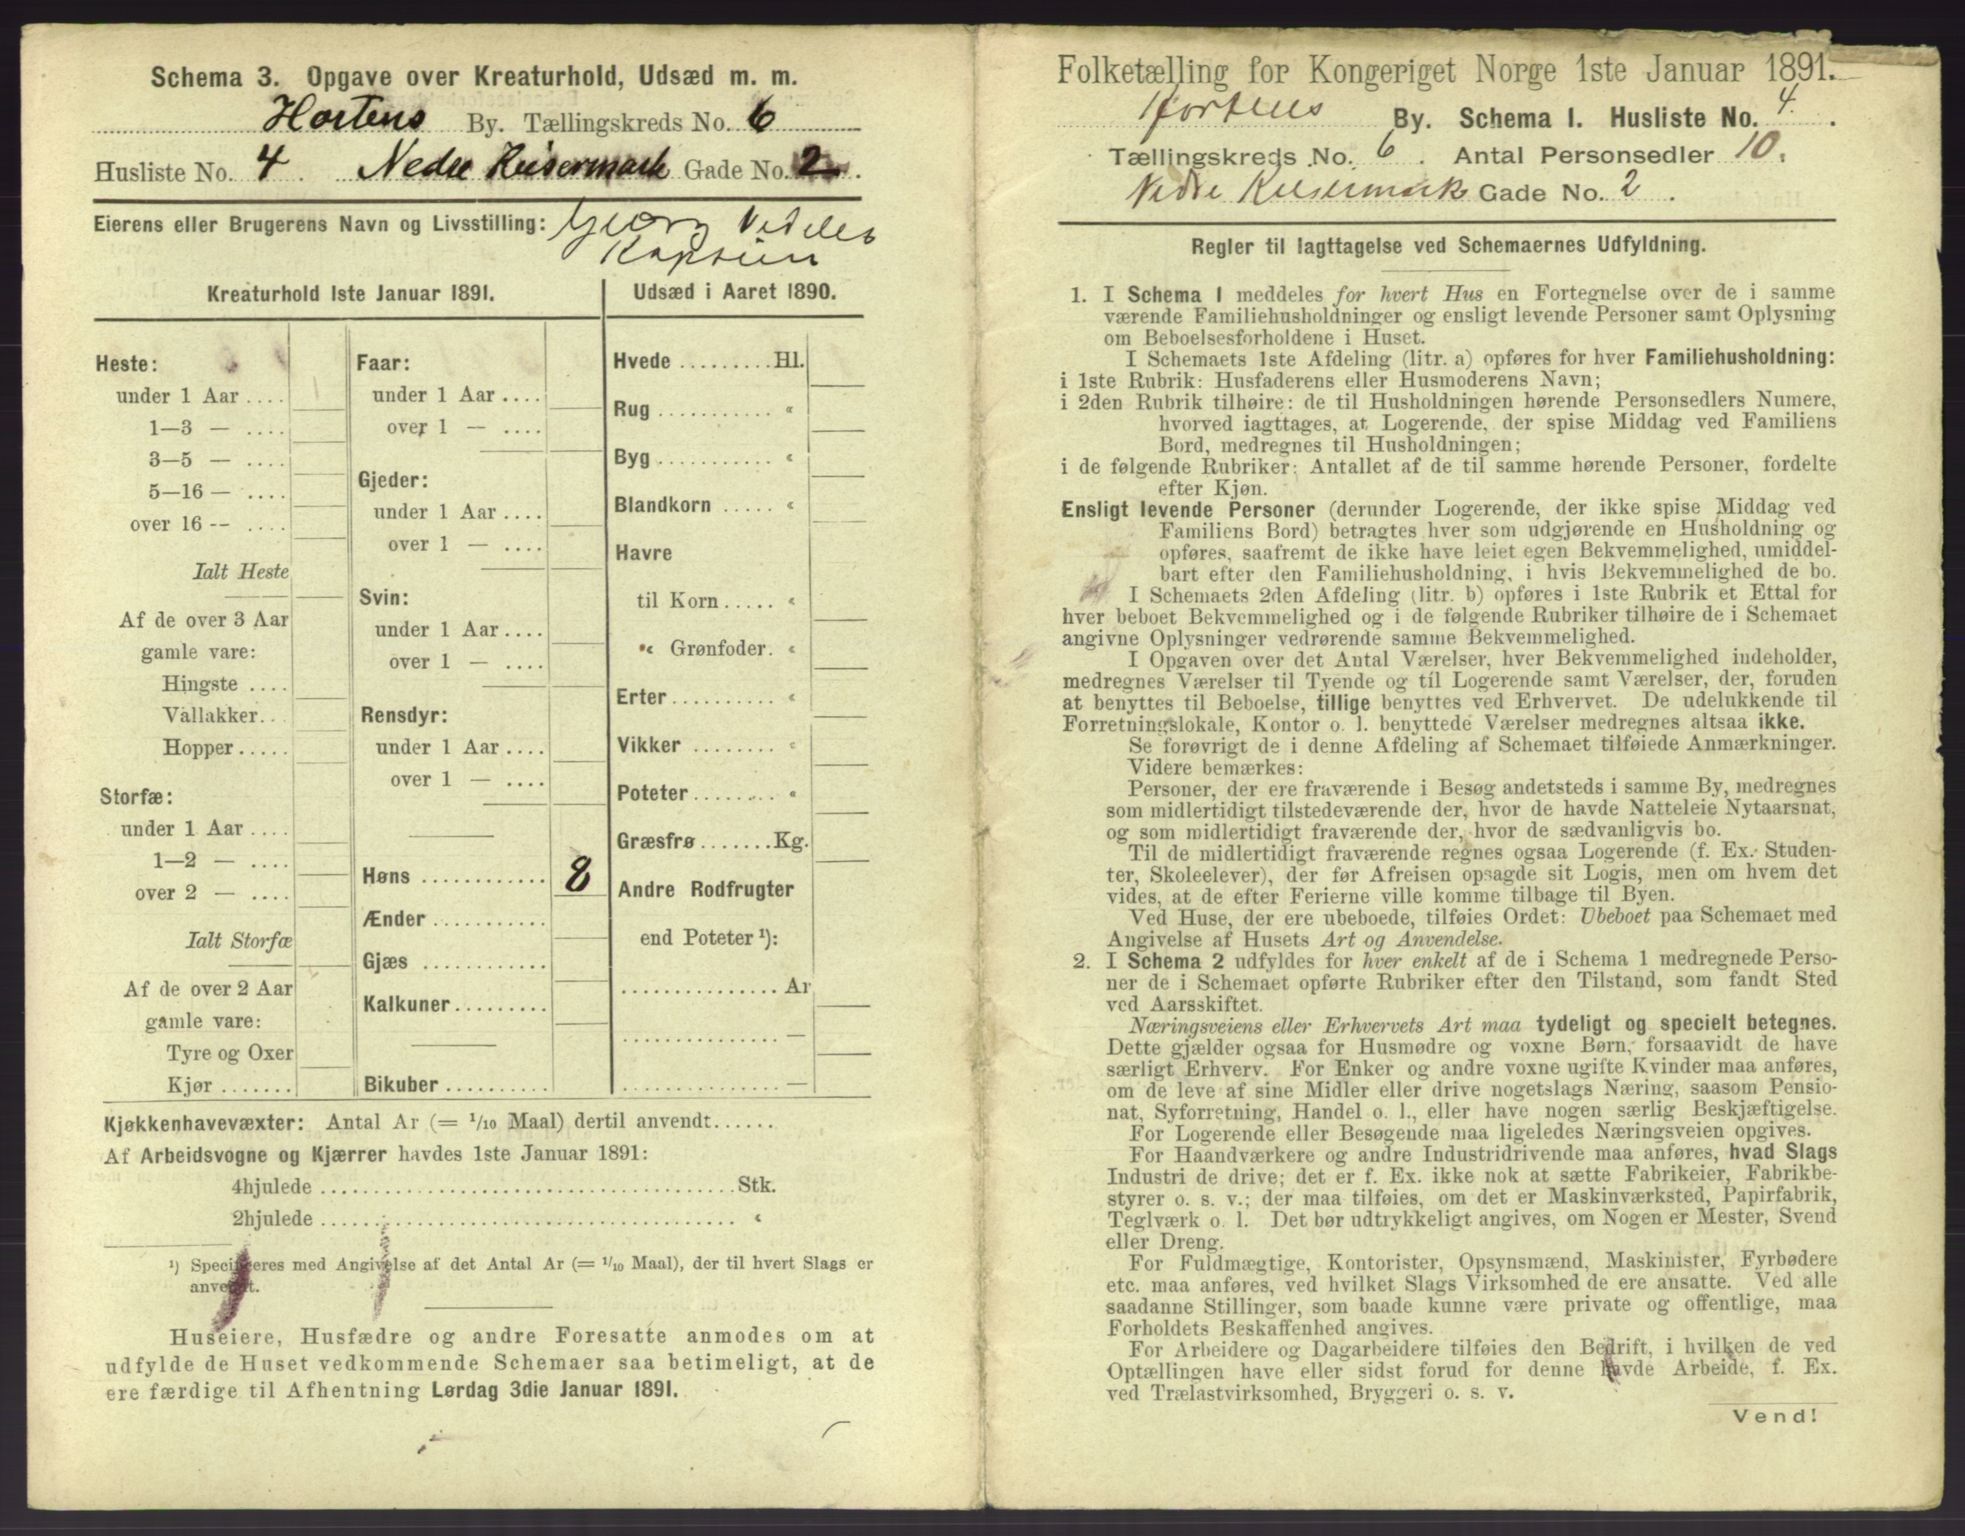 Schema 3. Opgave over Kreaturhold, Udsæd m. m.
Hortens By. Tællingskreds No. 6
Husliste No. 4. Nedre Keisermark Gade No. 2.
Eierens eller Brugerens Navn og Livsstilling: Georg Vedeler
Kaptein
Kreaturhold 1ste Januar 1891.
Heste:
under 1 Aar ....
1—3 — ....
3—5 — ....
5—16 — ....
over 16 -- ....
Ialt Heste
Af de over 3 Aar
gamle vare:
Hingste ....
Vallakker...
Hopper.....
Storfæ:
under 1 Aar ....
1—2 — ....
over 2 — ....
Ialt Storfæ
Af de over 2 Aar
gamle vare:
Tyre og Oxer
Kjør .......
Faar:
under 1 Aar ....
over 1 — ....
Gjeder:
under 1 Aar ....
over 1 — ....
Svin:
under 1 Aar....
over 1 — ....
Rensdyr:
under 1 Aar....
over 1 — ....
Høns ............ 8
Ænder ...........
Gjæs ............
Kalkuner.........
Bikuber ..........
Udsæd i Aaret 1890.
Hvede .........Hl.
Rug ........... “
Byg ........... “
Blandkorn ..... “
Havre
til Korn..... “
“ Grønfoder. “
Erter ......... “
Vikker ........ “
Poteter........ “
Græsfrø.......Kg.
Andre Rodfrugter
end Poteter ¹):
................Ar
................ —
................ —
Kjøkkenhavevæxter: Antal Ar (= 1/10 Maal) dertil anvendt......
Af Arbeidsvogne og Kjærrer havdes 1ste Januar 1891:
4hjulede ........................................Stk.
2hjulede ........................................ “
¹) Specificeres med Angivelse af det Antal Ar (= 1/10 Maal), der til hvert Slags er
anvendt.
Huseiere, Husfædre og andre Foresatte anmodes om at
udfylde de Huset vedkommende Schemaer saa betimeligt, at de
ere færdige til Afhentning Lørdag 3die Januar 1891.
Folketælling for Kongeriget Norge 1ste Januar 1891.
Hortens By. Schema I. Husliste No. 4.
Tællingskreds No. 6. Antal Personsedler 10.
Nedre Keisermark Gade No. 2.
Regler til Iagttagelse ved Schemaernes Udfyldning.
1. I Schema I meddeles for hvert Hus en Fortegnelse over de i samme
værende Familiehusholdninger og ensligt levende Personer samt Oplysning
om Beboelsesforholdene i Huset.
I Schemaets 1ste Afdeling (litr. a) opføres for hver Familiehusholdning:
i 1ste Rubrik: Husfaderens eller Husmoderens Navn;
i 2den Rubrik tilhøire: de til Husholdningen hørende Personsedlers Numere,
hvorved iagttages, at Logerende, der spise Middag ved Familiens
Bord, medregnes til Husholdningen;
i de følgende Rubriker: Antallet af de til samme hørende Personer, fordelte
efter Kjøn.
Ensligt levende Personer (derunder Logerende, der ikke spise Middag ved
Familiens Bord) betragtes hver som udgjørende en Husholdning og
opføres, saafremt de ikke have leiet egen Bekvemmelighed, umiddel-
bart efter den Familiehusholdning, i hvis Bekvemmelighed de bo.
I Schemaets 2den Afdeling (litr. b) opføres i 1ste Rubrik et Ettal for
hver beboet Bekvemmelighed og i de følgende Rubriker tilhøire de i Schemaet
angivne Oplysninger vedrørende samme Bekvemmelighed.
I Opgaven over det Antal Værelser, hver Bekvemmelighed indeholder,
medregnes Værelser til Tyende og til Logerende samt Værelser, der, foruden
at benyttes til Beboelse, tillige benyttes ved Erhvervet. De udelukkende til
Forretningslokale, Kontor o. l. benyttede Værelser medregnes altsaa ikke.
Se forøvrigt de i denne Afdeling af Schemaet tilføiede Anmærkninger.
Videre bemærkes:
Personer, der ere fraværende i Besøg andetsteds i samme By, medregnes
som midlertidigt tilstedeværende der, hvor de havde Natteleie Nytaarsnat,
og som midlertidigt fraværende der, hvor de sædvanligvis bo.
Til de midlertidigt fraværende regnes ogsaa Logerende (f. Ex. Studen-
ter, Skoleelever), der før Afreisen opsagde sit Logis, men om hvem det
vides, at de efter Ferierne ville komme tilbage til Byen.
Ved Huse, der ere ubeboede, tilføies Ordet: Ubeboet paa Schemaet med
Angivelse af Husets Art og Anvendelse.
2. I Schema 2 udfyldes for hver enkelt af de i Schema 1 medregnede Perso-
ner de i Schemaet opførte Rubriker efter den Tilstand, som fandt Sted
ved Aarsskiftet.
Næringsveiens eller Erhvervets Art maa tydeligt og specielt betegnes.
Dette gjælder ogsaa for Husmødre og voxne Børn, forsaavidt de have
særligt Erhverv. For Enker og andre voxne ugifte Kvinder maa anføres,
om de leve af sine Midler eller drive nogetslags Næring, saasom Pensio-
nat, Syforretning, Handel o. l., eller have nogen særlig Beskjæftigelse.
For Logerende eller Besøgende maa ligeledes Næringsveien opgives.
For Haandværkere og andre Industridrivende maa anføres, hvad Slags
Industri de drive; det er f. Ex. ikke nok at sætte Fabrikeier, Fabrikbe-
styrer o. s. v.; der maa tilføies, om det er Maskinværksted, Papirfabrik,
Teglværk o. l. Det bør udtrykkeligt angives, om Nogen er Mester, Svend
eller Dreng.
For Fuldmægtige, Kontorister, Opsynsmænd, Maskinister, Fyrbødere
etc. maa anføres, ved hvilket Slags Virksomhed de ere ansatte. Ved alle
saadanne Stillinger, som baade kunne være private og offentlige, maa
Forholdets Beskaffenhed angives.
For Arbeidere og Dagarbeidere tilføies den Bedrift, i hvilken de ved
Optællingen have eller sidst forud for denne havde Arbeide, f. Ex.
ved Trælastvirksomhed, Bryggeri o. s. v.
Vend!